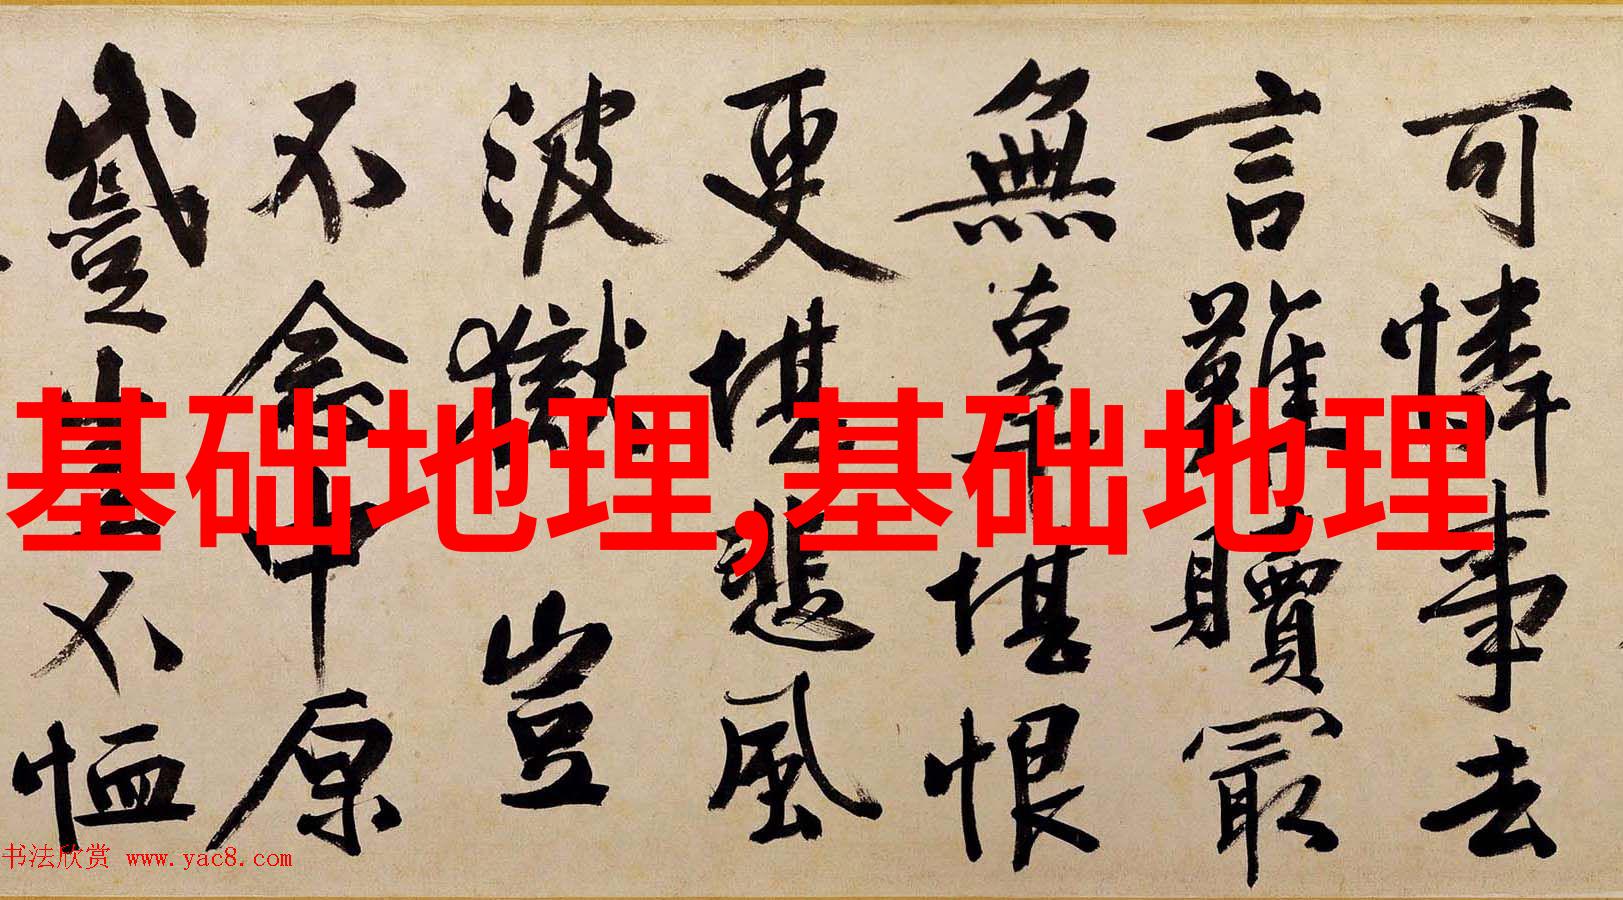 可憐事去
言難贖冣
無辜堪恨
更堪悲風
波獄豈
不念中原
蹙豈不恤
基础地理,基础地理
书法欣赏 www.yac8.com